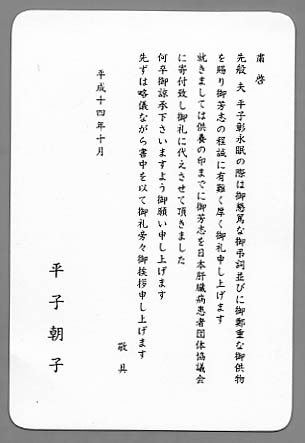 粛啓
先般 夫 平子彰永眠の際は御懇篤な御弔詞並びに御鄭重な御供物
を賜り御芳志の程誠に有難く厚く御礼申し上げます
就きましては供養の印までに御芳志を日本肝臓病患者団体協議会
に寄付致し御礼に代えさせて頂きました
何卒御諒承下さいますよう御願い申し上げます
先ずは略儀ながら書中を以て御礼旁々御挨拶申し上げます
敬具
平成十四年十月
平子朝子